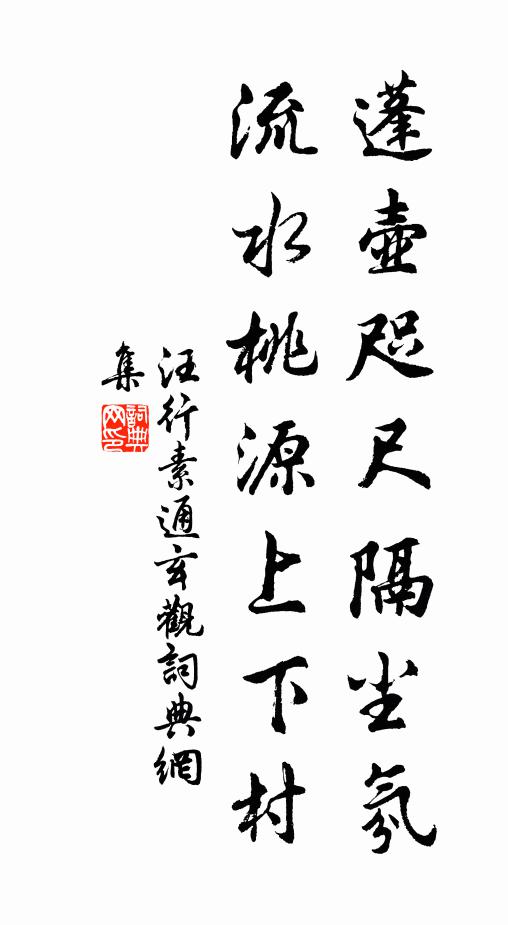 蓬壺咫尺隔尘氛
流水桃源上下村
汪行素通玄觀詞典網
集
詞典网印